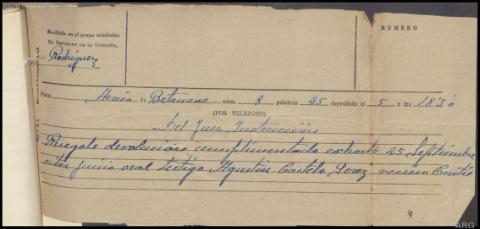 Recibido en el grupo telefónico
EL ENCARGADO DE LA CENTRALITA,
Rodríguez
NÚMERO
Para Mesía de Betanzos núm. 8 palabras 25 depositado el 5 a las 18'30
(POR TELEFONO)
Del Juez Instrucción
Ruegole devolución cumplimentada exhorto 25 Septiembre
citar juicio oral testigo Agustín Castelo vecino
ARG